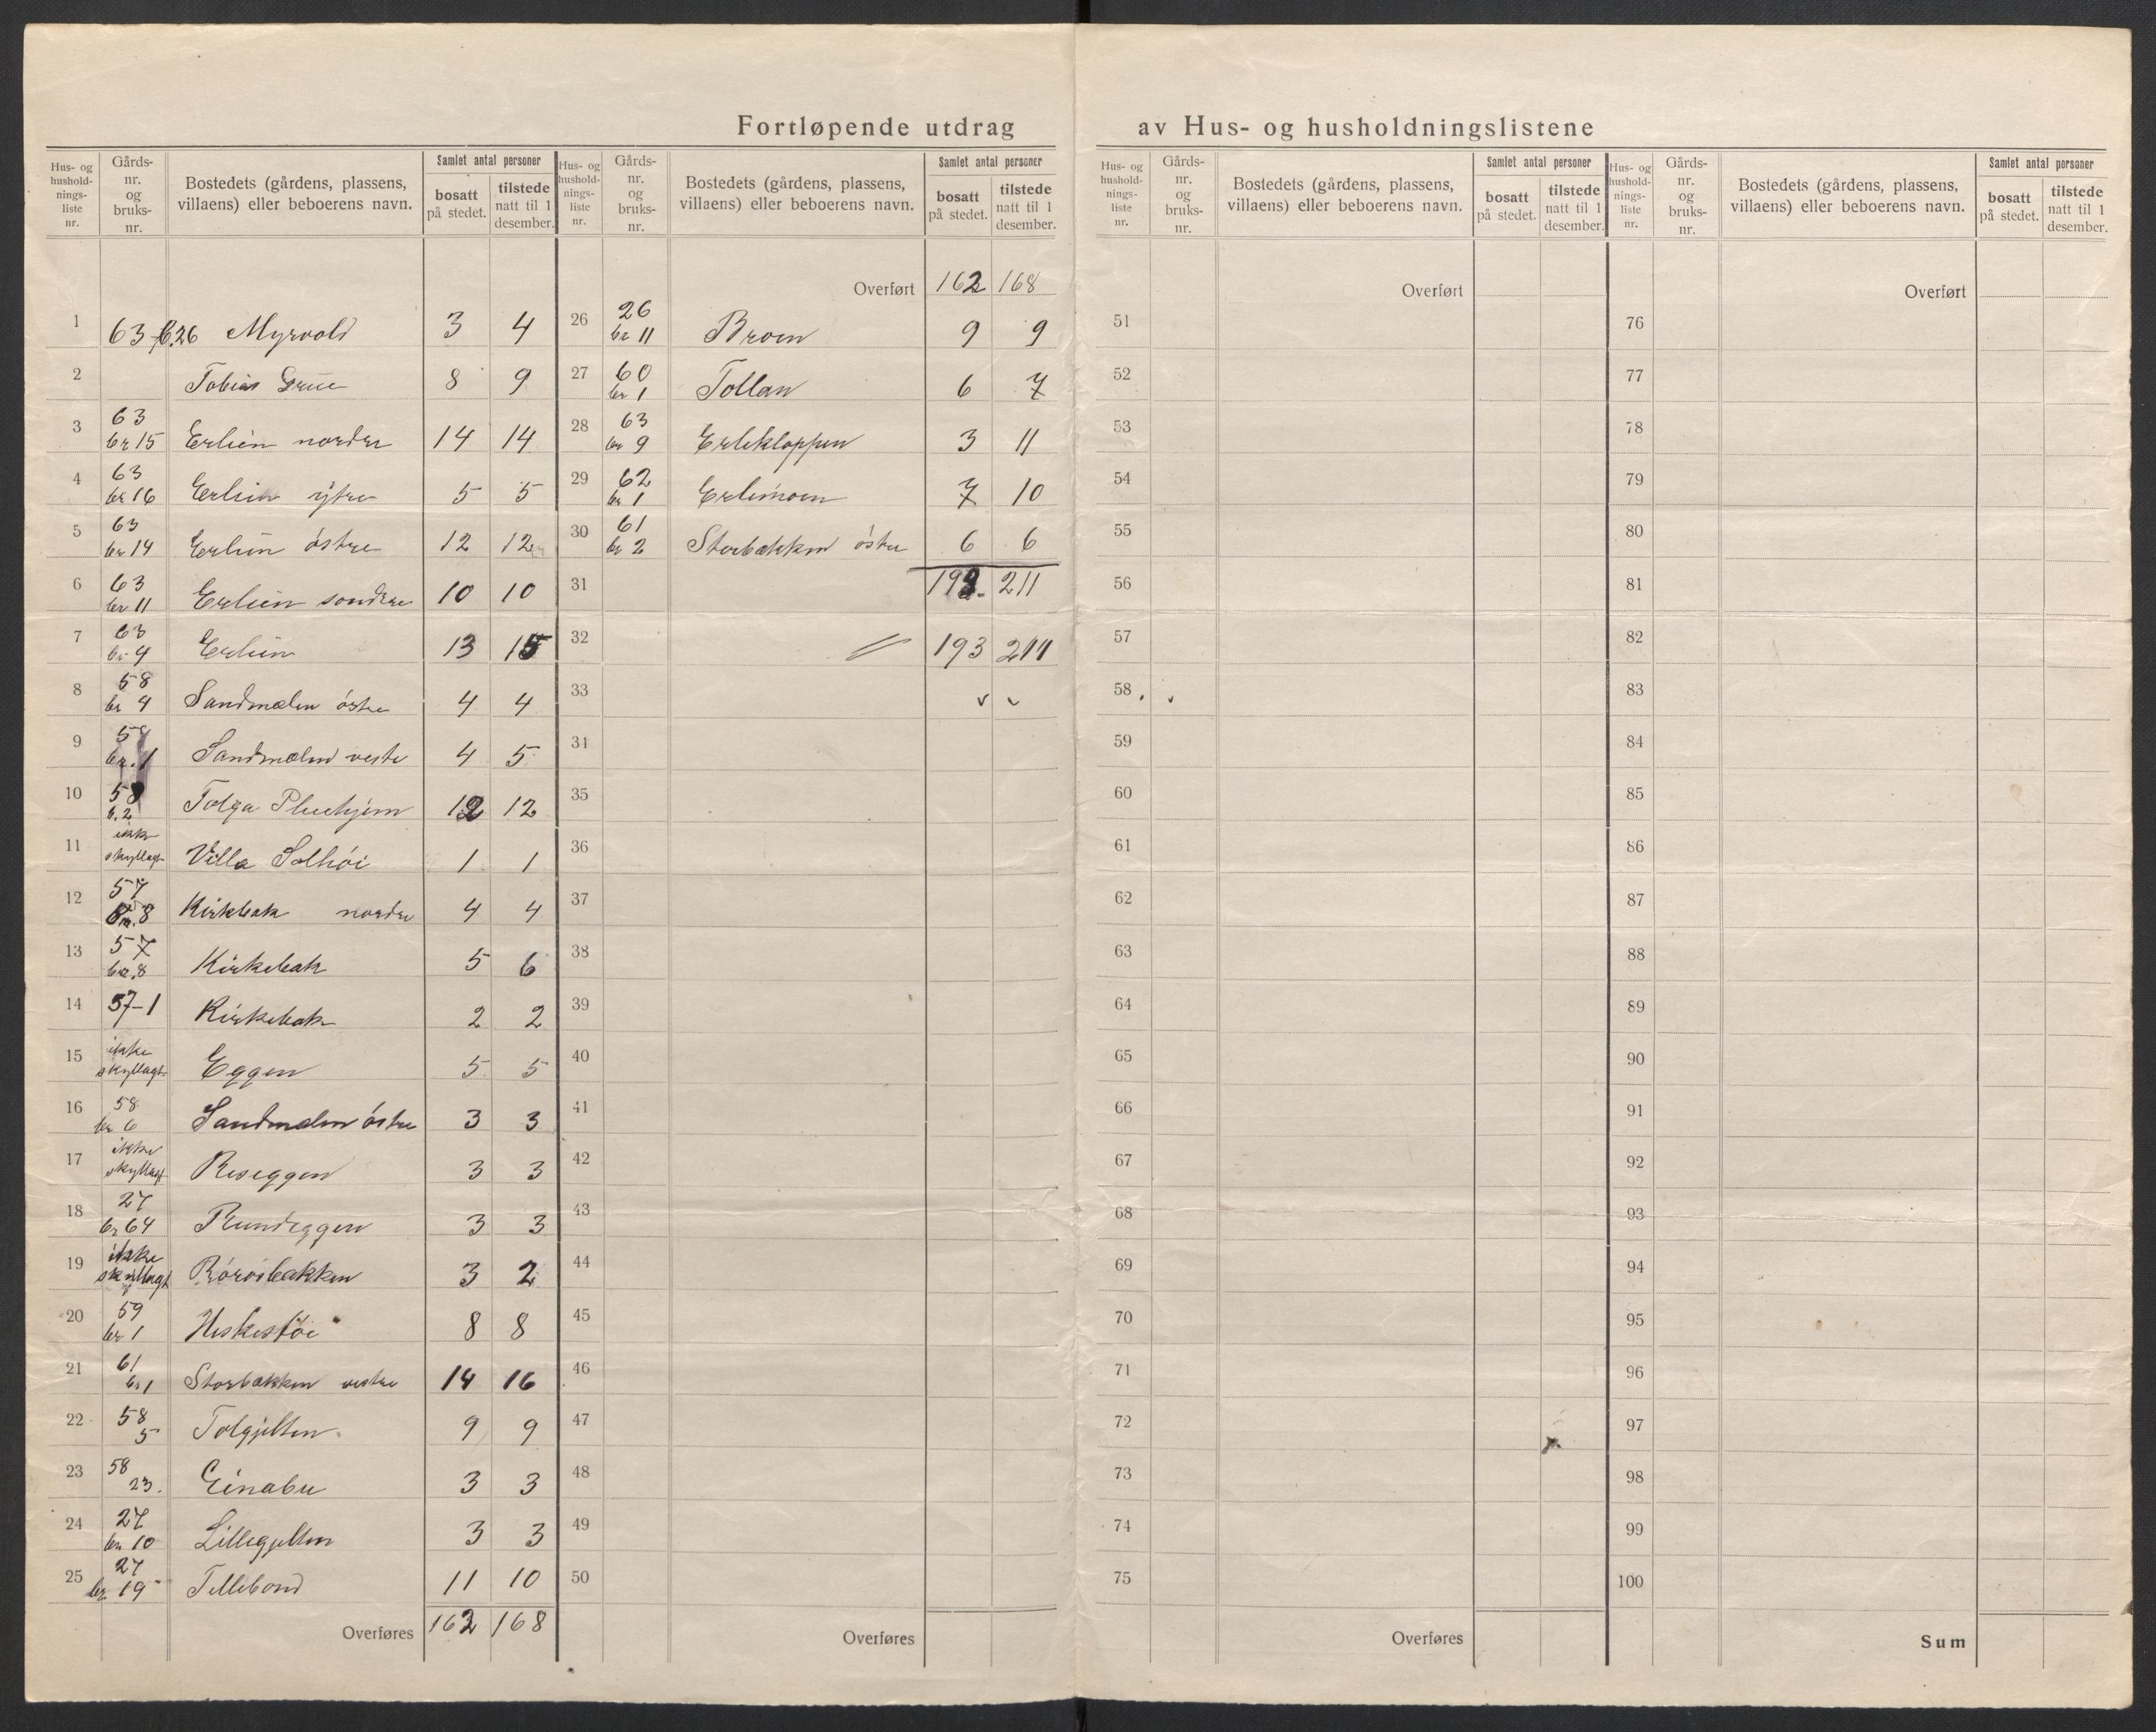 Fortløpende utdrag av Hus- og husholdningslistene
Hus- og hushold-nings-liste nr. Gårds-nr. og bruks-nr. Bostedets (gårdens, plassens, villaens) eller beboerens navn. Samlet antal personer bosatt på stedet. tilstede natt til 1 desember.
1 63-b.26 Myrvold 3 4
2 Tobias Grue 8 9
3 63 br 15 Erlien nordre 14 14
4 63 br 16 Erlien ytre 5 5
5 63 br 14 Erlien østre 12 12
6 63 br 11 Erlien søndre 10 10
7 63 br 4 Erlien 13 15
8 58 br 4 Sandmælen østre 4 4
9 58 br. 1 Sandmælen vestre 4 5
10 58 b. 2 Tolga Pleiehjem 12 12
11 ikke skyllagt Villa Solhøi 1 1
12 57 br. 8 Kirkbak nordre 4 4
13 57 br. 8 Kirkebak 5 6
14 57-1 Kirkebak 2 2
15 ikke skyllagt Eggen 5 5
16 58 br 6 Sandmælen østre 3 3
17 ikke skyllagt Reseggen 3 3
18 27 br 64 Rundeggen 3 3
19 ikke skyllagt Rørosbakken 3 2
20 59 br 1 Heskestøe 8 8
21 61 br 1 Storbækken vestre 14 16
22 58 5 Tolgjelten 9 9
23 58 23. Einabu 3 3
24 27 br 10 Lillegjelten 3 3
25 27 br 19 Tillebond 11 10
Overføres 162 168
Hus- og hushold-nings-liste nr. Gårds-nr. og bruks-nr. Bostedets (gårdens, plassens, villaens) eller beboerens navn. Samlet antal personer bosatt på stedet. tilstede natt til 1 desember.
Overført 162 168
26 26 br 11 Broen 9 9
27 60 br 1 Tollan 6 7
28 63 br 9 Erlikloppen 3 11
29 62 br 1 Erlimoen 7 10
30 61 br 2 Storbækken østre 6 6
31 193 211
32 193 211
33
34
35
36
37
38
39
40
41
42
43
44
45
46
47
48
49
50
Overføres
Hus- og hushold-nings-liste nr. Gårds-nr. og bruks-nr. Bostedets (gårdens, plassens, villaens) eller beboerens navn. Samlet antal personer bosatt på stedet. tilstede natt til 1 desember.
Overført
51
52
53
54
55
56
57
58
59
60
61
62
63
64
65
66
67
68
69
70
71
72
73
74
75
Overføres
Hus- og hushold-nings-liste nr. Gårds-nr. og bruks-nr. Bostedets (gårdens, plassens, villaens) eller beboerens navn. Samlet antal personer bosatt på stedet. tilstede natt til 1 desember.
Overført
76
77
78
79
80
81
82
83
84
85
86
87
88
89
90
91
92
93
94
95
96
97
98
99
100
Sum